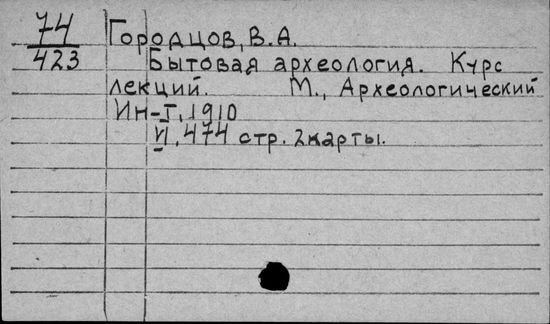 74 Городцов, В.А.
423 Бытовая археология. Курс
лекций. М., Археологический
Ин-т, 1910
VI, 474 стр. 2 карты.